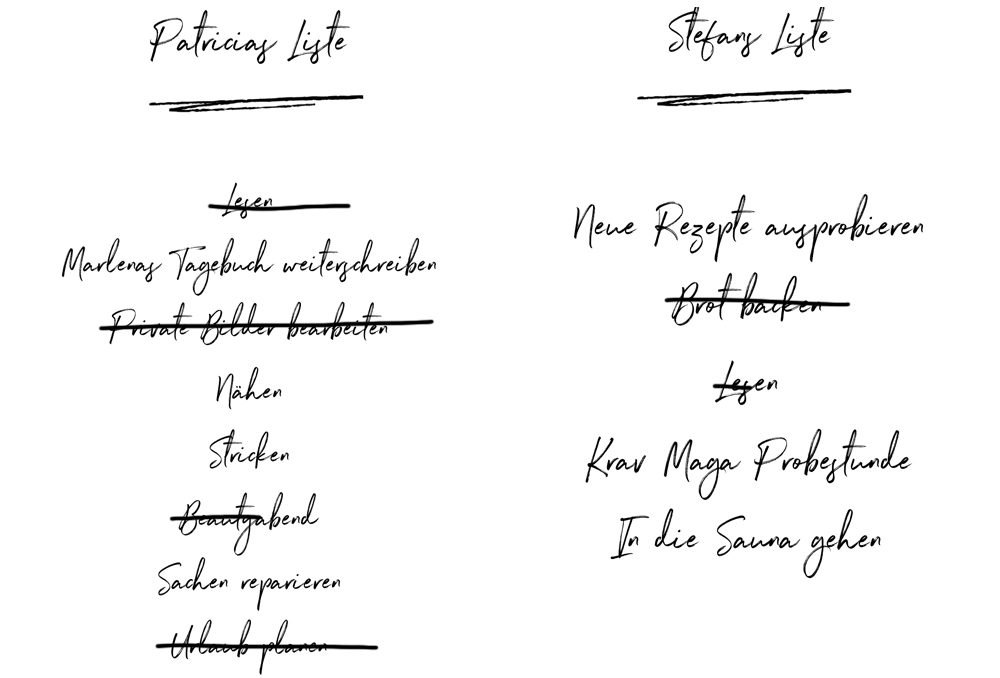 Patricias Liste
Lesen
Marlenas Tagebuch weiterschreiben
Private Bilder bearbeiten
Nähen
Stricken
Beautyabend
Sachen reparieren
Urlaub planen
Stefans Liste
Neue Rezepte ausprobieren
Brot backen
Lesen
Krav Maga Probestunde
In die Sauna gehen